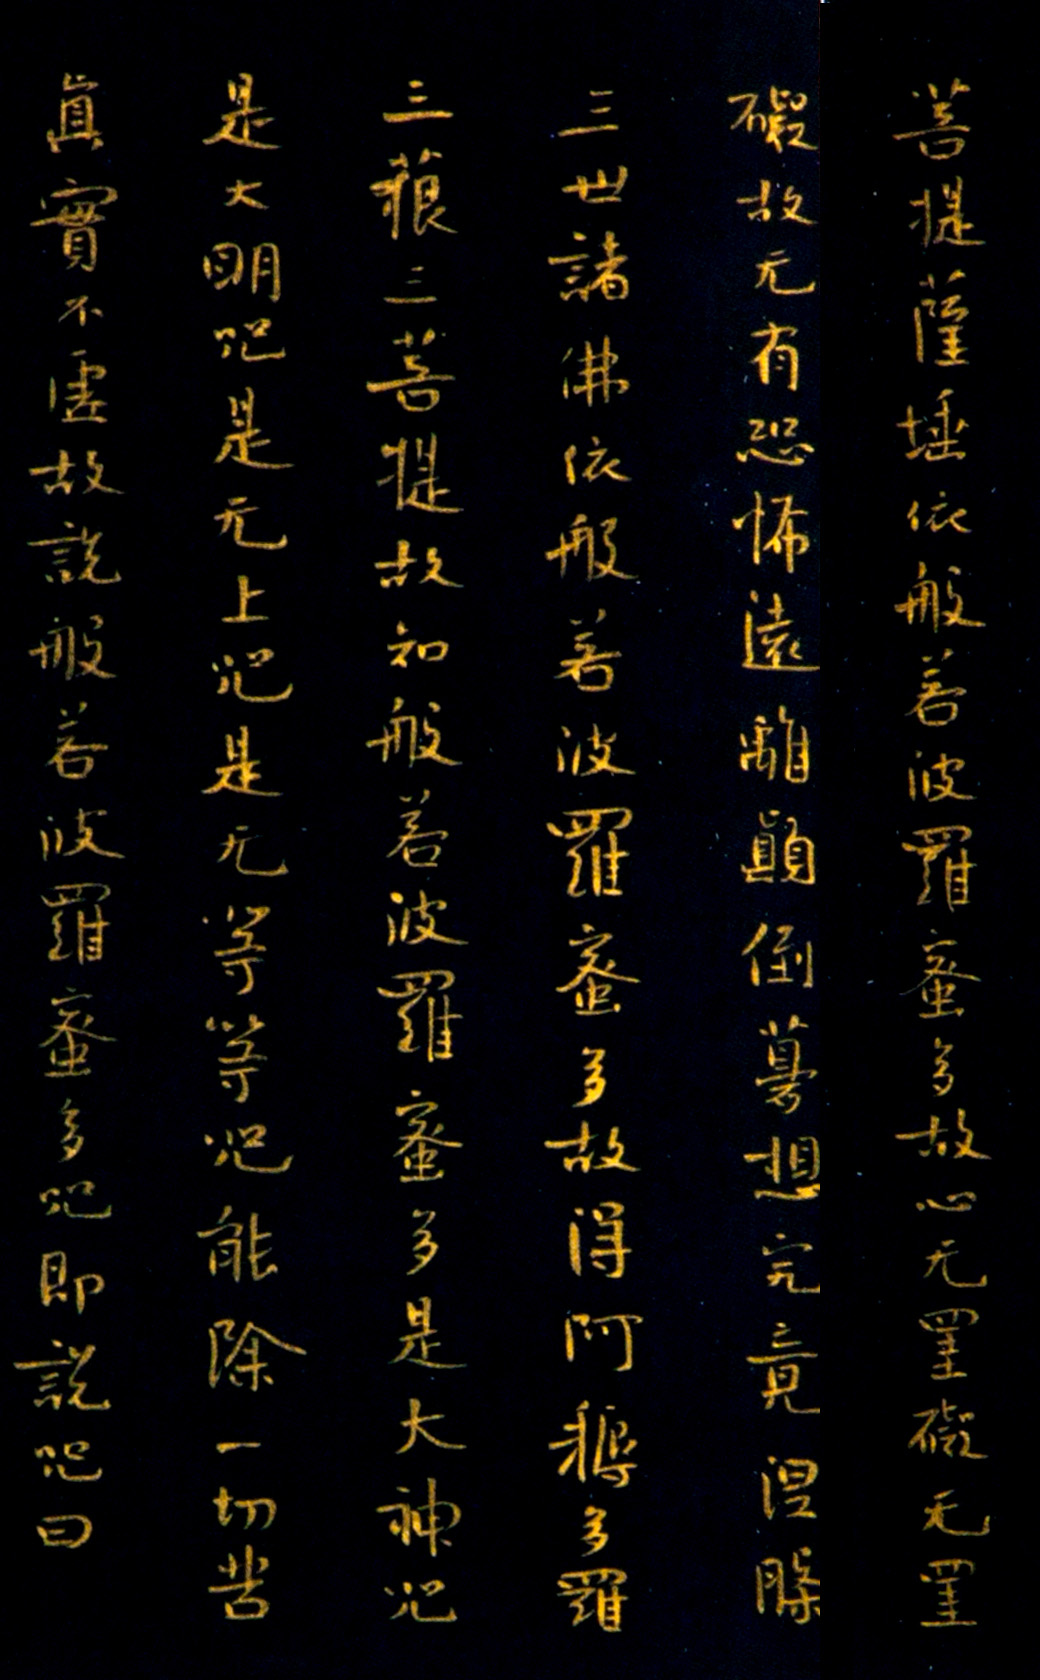 菩提薩埵依般若波羅蜜多故心无罣礙无罣
礙故无有恐怖遠離顛倒夢想究竟涅槃
三世諸佛依般若波羅蜜多故得阿耨多羅
三藐三菩提故知般若波羅蜜多是大神咒
是大明咒是无上咒是无等等咒能除一切苦
真實不虛故說般若波羅蜜多咒即說咒曰